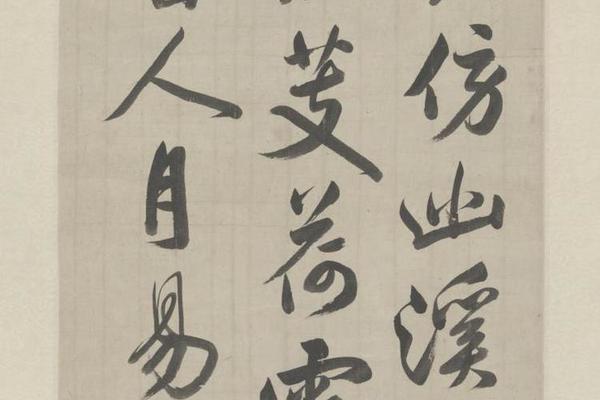 仿幽溪
芰荷
人月易